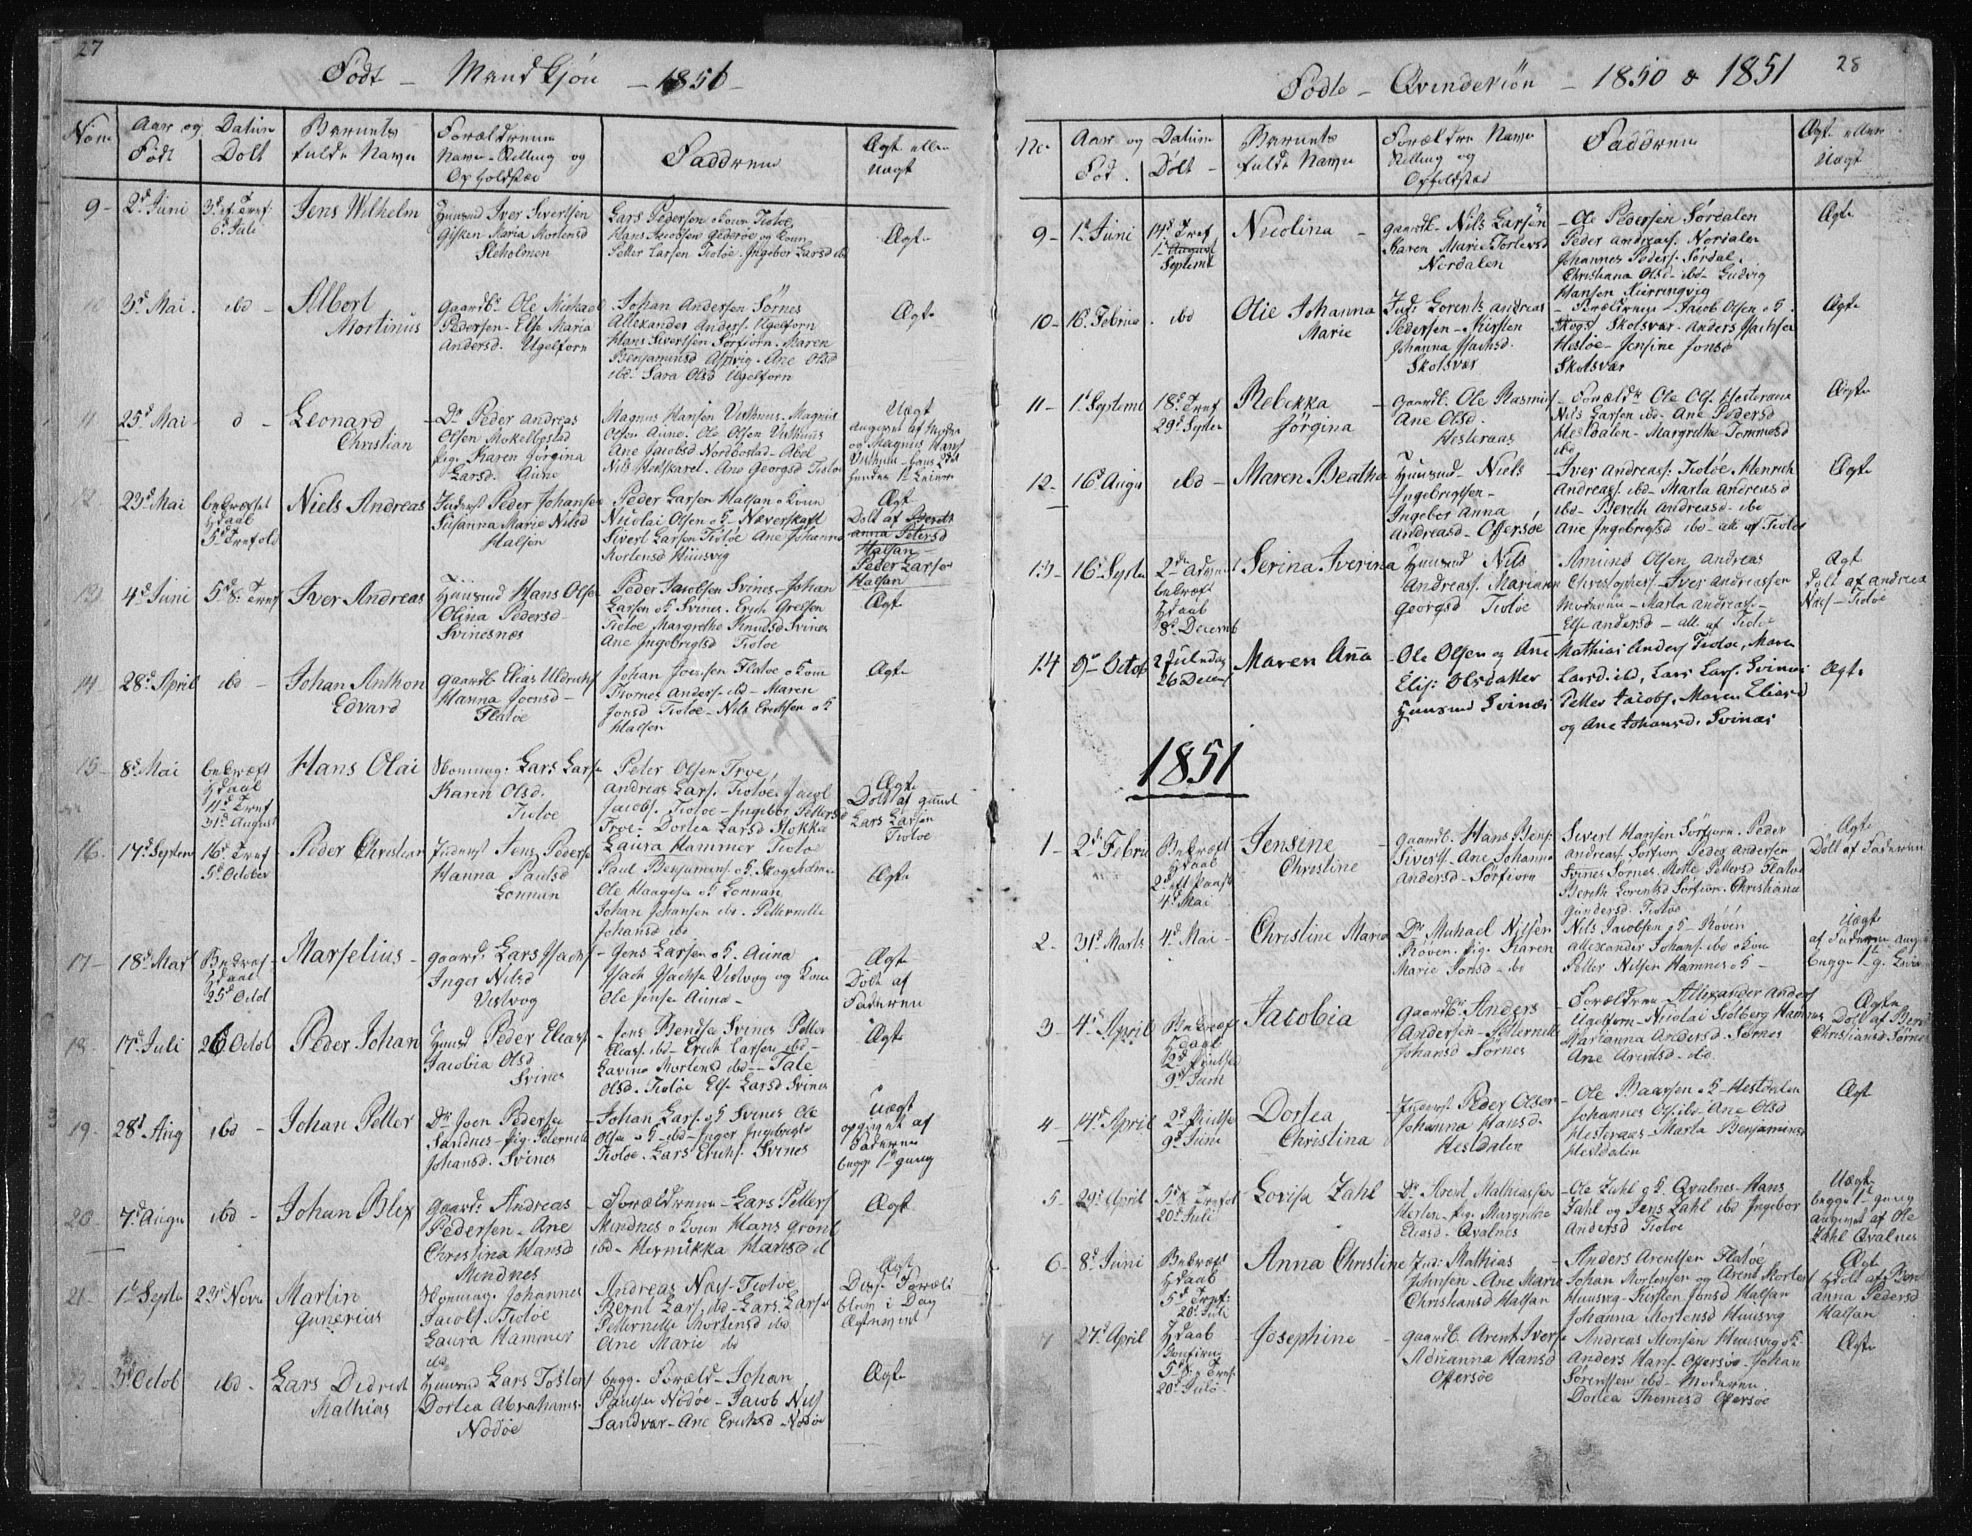 27
Født – Mandkjøn – 1850 –
Nöm
Aar og Datum
Født
Døbt
Barnets
fulde Navn
Forældrene
Navn – Stilling og
Opholdsted
Faddrene
Ægte eller
uægt
9 –
2d Juni
3d ef. Tref
6d Juli
Jens Wilhelm
Huusmd Iver Sivertsen
Gisken Maria Mortensd
Steholmen
Lars Pedersen o Kone Tiotøe
Hans Jacobsen
Petter Larsen Tiotøe. Ingebor Larsd ibd
Ægte
10
3d Mai
ibd –
Albert
Mortinus
Gaardb. Ole Michael
Pedersen – Else Maria
Andersd. Ugelforn
Johan Andersen Sørnes
Allexander Anders. Ugelforn
Hans Sivertsen Sørfiorn. Maren
Benjaminsd – Ane Olsd
ibd. Sara Olsd Ugelforn
Ægte
11
25d Mai
d –
Leonard
Christian
Dr Peder Andreas
Olsen Mokelbostad
pig. Karen Jørgina
Larsd. Aune
Magnus Hansen Visthuus. Magnus
Olsen Aune. Ole Olsen Visthuus
Ane Jacobsd Nordbostad – Abel
Nils – Ane Georgsd Tiotøe
Uægt
angiven af Moder
og Magnus Hans
12
23d Mai
bekræftet
H Daab
5d Trefold
Niels Andreas
Inderst Peder Johansen
Susanna Marie Nilsd
Halsen
Peder Larsen Halsan o Kone
Nicolai Olsen o H – Næverskaft
Sivert Larsen Tiotøe Ane Johanna
Mortensd Huusvig
Ægt
Døbt af Bereth
Anna Petersd
Halsan –
Peder Larsen
Halsan
13
4d Juni
5d S. Tref
Iver Andreas
Huusmd Hans Olsen
Olina Pedersd –
Svinesnæs
Peder Jacobsen Svines – Johan
Larsen o H Svines. Erich Grelsen
Tiotøe Margrethe Knudsd Svines
Ane Ingebrigtsd Tiotøe
Ægte
14
28d April
ibd –
Johan Anthon
Edvard
Gaardb Elias Uldrichs
Hanna Joensd –
Flatøe
Johan Joensen Flatøe o Kone
Anders. ibd – Maren
Jonsd Tiotøe – Nils Erichsen o H
Halsen
Ægte
15 –
8d Mai
bekræft
H Daab
11d Tref
31d August
Hans Olai
Lars Lars
Karen Olsd.
Tiotøe
Peter Olsen Troe,
Andreas Lars. Tiotøe. Jacob
Jacobs. Tiotøe – Ingebor Pettersd
Troe. Dortea Larsd Stokka
Laura Hammer Tiotøe
Ægte
Døbt af
Lars Larsen
Tiotøe
16
17d Septem
16d Tref
5d October
Peder Christian
Inderst Jens Peders
Hanna Paulsd
Lonnan
Paul Benjamins. o H. Skogsholmen
Ole Haagens o H Lonnan
Johan Johansen ibd. Petternelle
Johansd ibd
Ægte
17 –
18d Mai
Bekræf
H Daab
25d Octob
Marselius –
Gaard. Lars Isachs
Inger Nilsd
Vistvog
– Jens Larsen o H. Auna
Isach Isachse Vistvog og Kone
Ole Jense Auna –
Ægt
Døbt af
Faderen
18
17d Juli
26 Octob
Peder Johan
Huusd Peder Elias
Jacobia Olsd
Svines
– Jens Bendse Svines Petter
Elias. ibd – Erich Larsen ibd –
Lavina Mortensd ibd – Tale
Olsd. Tiotøe Else Larsd Svines
Ægte
19 –
28d Aug
ibd –
Johan Petter
Dr Joen Pederse
Sandnes – pig. Peternelle
Johansd. Svines
– Johan Lars. o H Svines Ole
Olse o H – ibd – Inger Ingebrigts
Tiotøe. Lars Erichs. Svines
Uægt
opgivet af
Faderen
begge 1st gang
20 –
7d Augu
ibd –
Johan Blix
Gaard: Andreas
Pedersen – Ane
Christina Hansd
Mindnes
– Forældrene – Lars Petters
Mindnes o Kone Hans
ibd – Hernikka Hansd d
Ægt
21 –
1d Septe
23d Nov
Martin
Gunerius
Johannes
Jacobs. Tiotøe
Laura Hammer
ibd
Andreas Nass – Tiotøe
Bernt Lars, ibd – Lars Larse
Petternelle Mortensd ibd
Ane Marie ibd
Ægt
Diss. Foræl
blev i Dag
Ægteviet
3d Octob
ibd –
Lars Didrich
Mathias
Huusmd Lars Tosters
Dortea Abrahams
Nodøe
begge Foræld – Johan
Paulsen Nodøe – Jacob Nils
Sandvær – Ane Erichsd Nodøe
Ægte
28
Fødte – Qvindekiön – 1850 & 1851
No
Aar og Datum
Fød.
Døbt –
Barnets
fulde Navn
Forældre Navn
Stilling og
Opholdsted
Faddrene
Ægte eller
Uægt
9 –
1d Juni
14d Tref
1 August
Septemb
Nicolina –
Gaardb – Nils Larsen
Karen Marie Torlevsd
Nordalen
– Ole Pedersen Sørdalen
Peder Andreass. Nordalen
Johannes Peders. Sørdal.
Christiana Olsd – ibd – Ludvig
Hansen Kierringvig
Ægte
10 –
16d Februa
ibd
Olie Johanna
Marie
Ind. Lorents Andreas
Pedersen – Kirsten
Johanna Isachsd.
Skotsvær
– Forældrene – Jacob Olsen o H.
Skogs. Skotsvær – Anders Isachse
Hestøe – Jensine Jonsd
Skotsvær
Ægte
11 –
1d Septemb
18d Tref
29d Septem
Rebekka
Jørgina
– Gaardb. Ole Rasmus
Ane Olsd.
Hesteraas
– Foræld. Ole Ols. Hesteraas
Nils Larsen ibd – Ane Pedersd
Hestdalen – Margrethe Tommesd
ibd
Ægte
12 –
16d Augu
ibd –
Maren Beatha
Huusmd – Niels
Ingebrigtsen –
Ingebor Anna
Andreasd – Offersøe
– Iver Andreass. Tiotøe, Henrich
Andreass. ibd – Marta Andreasd
ibd – Bereth Andreasd – ibd
Ane Ingebrigtsd ibd – alle af Tiotøe
Ægte
13 –
16d Septe
2den Adven
bekræft
H Daab
8d Decemb
Serina Iverina
Huusmd Nils
Andreass. Mariann
Georgsd Tiotøe
Amund Olsen, Andreas
Christophers. – Iver Andreassen
Moderen – Marta Andreass. –
Else Andersd – all. af Tiotøe
Ægt
Døbt af Andreas
Nass – Tiotøe
14
9de Octob
2 Juledag
26 Decemb
Maren Aña
– Ole Olsen og Ane
Elis: Olsdatter
Huusmd Svinæs
Mathias Anders Tiotøe, Maren
Larsd. ibd, Lars Lars. Svinæs
Petter Jacobs. Maren Eliasd
og Ane Johansd. Svinæs
Ægte
1851
1 –
2d Febru
Bekræft
H Daab
2d eft Paask
4d Mai
Jensine
Christine
– Gaardb. Hans Benj.
Siverts. – Ane Johanna
Andersd – Sørfiorn
Sivert Hansen Sørfiorn. Peder
Andreass. Sørfiorn Peder Andersen
Svines Sørnes – Mette Pettersd Flatøe
Bereth Lorentsd Sørfiorn. Christiana
Gundersd. Tiotøe
Ægte
Døbt af Faderen
2 –
31d Marts
4d Mai –
Christine Maria
Dr Michael Nilsen
Røven. pig. Karen
Marie Jonsd – ibd
Nils Jacobsen o H – Røven
Allexander Johans. ibd o Kone
Petter Nilsen Hamnes o H –
Uægt
af Faderen angiv
begge 1st g.
3 –
4d April
Bekræf
H Daab
2d Pintsed
9d Juni
Jacobia
Gaardb: Anders
Andersen – Petternelle
Johansd Sørnes
Forældrene – Allexander Anders
Ugelforn – Nicolai Stolberg Hamnes
Marianna Andersd. Sørnes
Ane Arentsd – ibd
Ægte
Døbt af Bere
Christiansd Sørnes
4 –
14d April
2d Pintse
9d Juni
Dortea
Christina
– Inderst Peder Olsen
Johanna Hansd.
Hestdalen
– Ole Baarsen o H – Hestdalen
Johannes Ols. ibd – Ane Olsd
Hesteraas – Marta Benjaminsd
Hestdalen
Ægt
5 –
29d April
5d S. Trefol
20d Juli
Lovisa Zahl
Dr Arent Mathiassen
Herlen – pige Margrethe
Eliasd – Qvalnes
– Ole Zahl o H. Qvalnes – Hans
Zahl og Jens Zahl ibd Ingebor
Andersd Tiotøe
Uægt
begge 1st gang
angivet af Ole
Zahl Qvalnes
6 –
8d Juni
Bekræft
H Daab
5d Tref.
20d Juli
Anna Christine
Ind: Mathias
Johnsen – Ane Maria
Christiansd Halsan
– Anders Arentsen Flatøe
Johan Mortensen og Arent Mortens
Huusvig – Kirsten Jonsd Halsan
Johanna Mortensd Huusvig
Ægt
Hdøbt af
Anna Pedersd
Halsan
7
27d April
H Daab
Confirm
5d S. e Tref.
20d Juli
Josephine
– Gaardb. Arent Ivers
Adrianna Hansd
Offersøe
– Andreas Monsen Huusvig o H
Anders Hans. Offersøe – Johan
Sørenssen ibd – Moderen
Dortea Thomesd Offersøe
Ægte